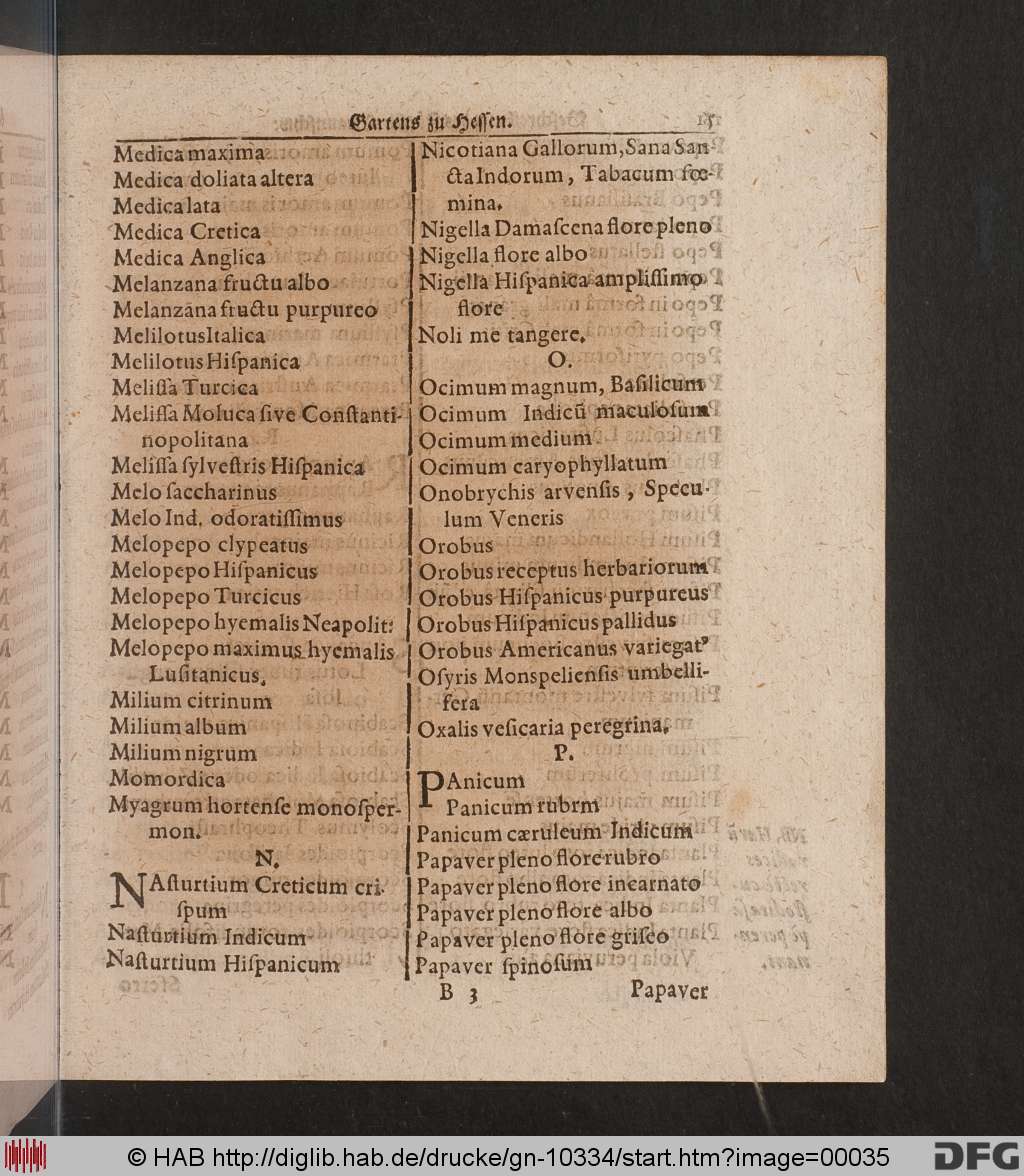 Gartens zu Hessen.
Medica maxima
Medica doliata altera
Medica lata
Medica Cretica
Medica Anglica
Melanzana fructu albo
Melanzāna fructu purpureo
Melilotus Italica
Melilotus Hiſpanica
Meliſſa Turcica
Meliſſa Moluca ſive Conſtanti-
nopolitana
Meliſſa ſylveſtris Hiſpanica
Melo ſaccharinus
Melo Ind. odoratiſſimus
Melopepo clypeatus
Melopepo Hiſpanicus
Melopepo Turcicus
Melopepo hyemalis Neapolit:
Melopepo maximus hyemalis
Luſitanicus.
Milium citrinum
Milium album
Milium nigrum
Momordica
Myagrum hortenſe monoſper-
mon.
N.
NAſturtium Creticum cri-
ſpum
Naſturtium Indicum
Naſturtium Hiſpanicum
Nicotiana Gallorum, Sana San-
cta Indorum, Tabacum fœ-
mina.
Nigella Damaſcena flore pleno
Nigella flore albo
Nigella Hiſpanica ampliſſimo
flore
Noli me tangere.
O.
Ocimum magnum, Baſilicum
Ocimum Indicū maculoſum
Ocimum medium
Ocimum caryophyllatum
Onobrychis arvenſis, Specu-
lum Veneris
Orobus
Orobus receptus herbariorum
Orobus Hiſpanicus purpureus
Orobus Hiſpanicus pallidus
Orobus Americanus variegatꝰ
Oſyris Monspelienſis umbelli-
fera
Oxalis veſicaria peregrina.
P.
PAnicum
Panicum rubrm
Panicum cæruleum Indicum
Papaver pleno flore rubro
Papaver pleno flore incarnato
Papaver pleno flore albo
Papaver pleno flore griſeo
Papaver ſpinoſum
B 3 Papaver
© HAB http://diglib.hab.de/drucke/gn-10334/start.htm?image=00035
DFG